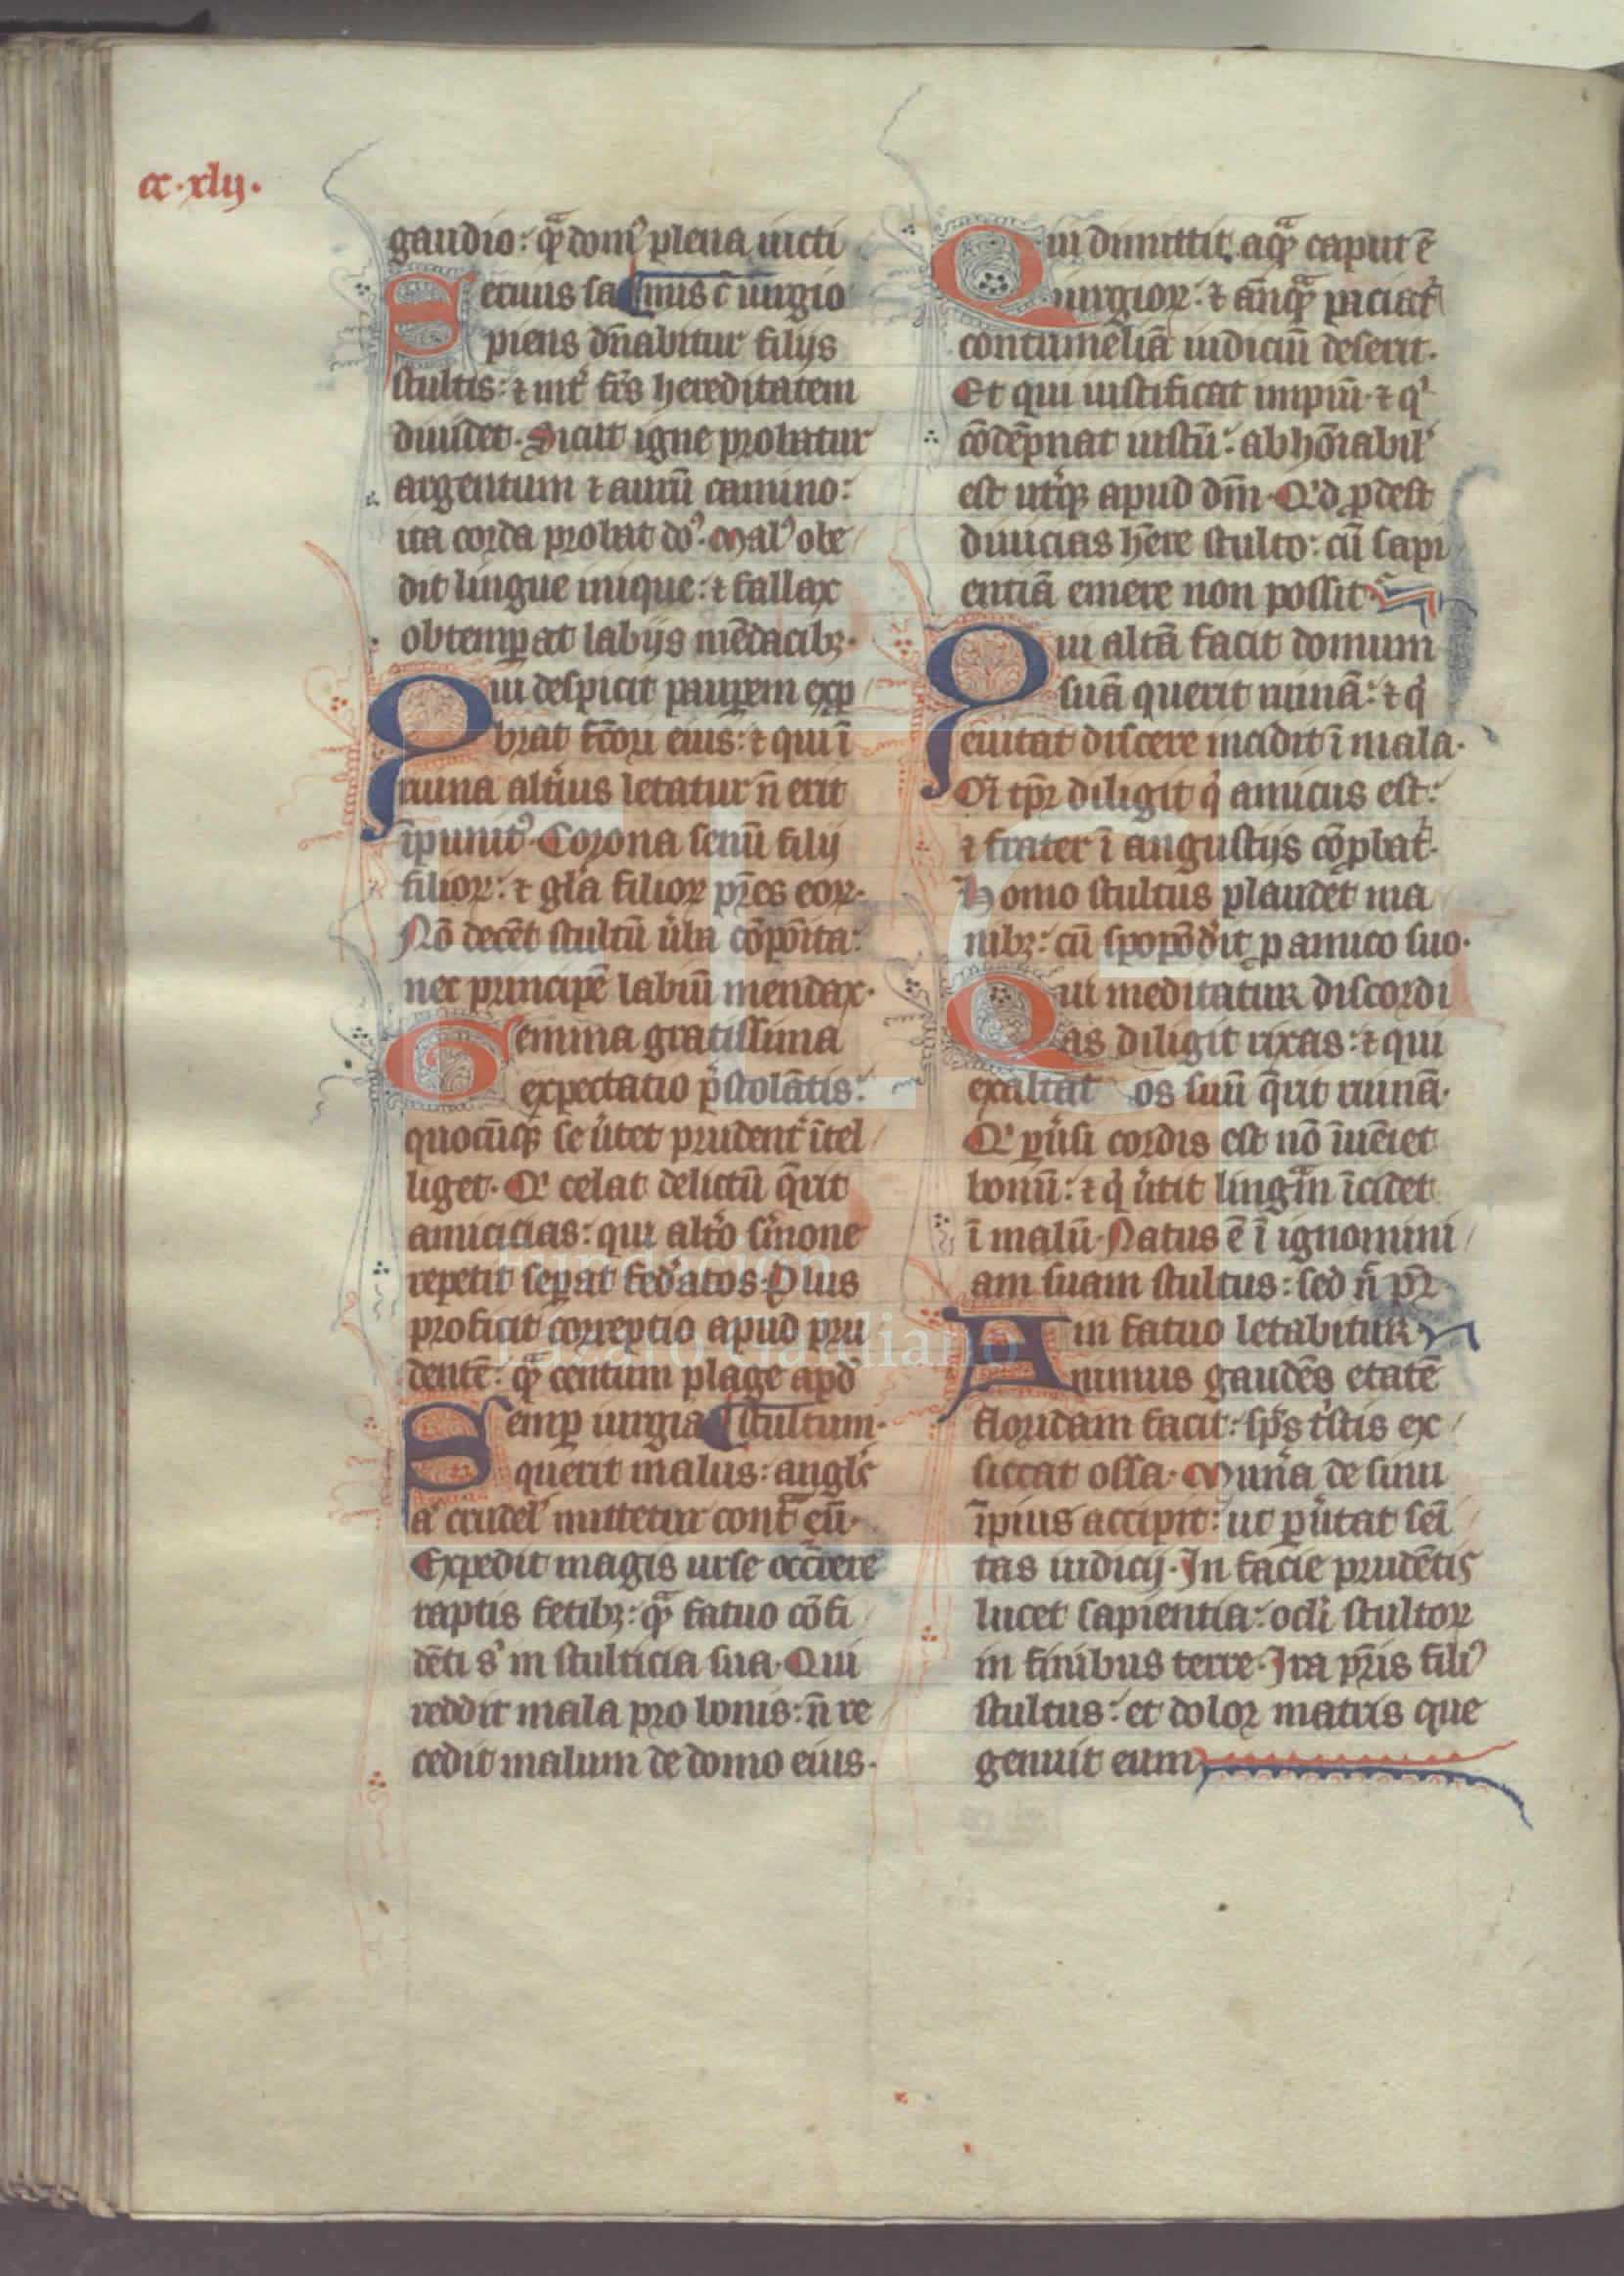 cc·xlij·
gaudio: qͣ̃ domꝰ plena uicti
Seruus sa¶mis cͫ iurgio
piens dn̄abitur filijs
stultis: ⁊ int̾ fr̄s hereditatem
diuidet. Sicut igne probatur
argentum ⁊ aurū camino:
ita corda probat doꝰ. Malꝰ obe
dit lingue inique: ⁊ fallax
obtemꝑat labijs mēdacibꝫ.
Qui despicit pauꝑem exp
brat fc̄ori eius: ⁊ qui ī
ruina alt̾ius letatur n̄ erit
īpunitꝰ. Corona senū filij
filioꝝ: ⁊ gl̄a filioꝝ pr̄es eoꝝ.
Nō decēt stultū ūba cōpōita:
nec principē labiū mendax.
Gemma gratissima
expectatio p̄stolātis:
quocūqꝫ se ūtet prudent̾ ītel
liget. Qͥ celat delictū q̄rit
amicicias: qui alt̾o s̄mone
repetit seꝑat fed̾atos. Plus
proficit correptio apud pru
dentē: qͣ̃ centum plage apd̾
Semꝑ iurgia ¶stultum.
querit malus: angl̾s
a̾ crudel̾ mittetur contͣ eū.
Expedit magis urse occrrere
raptis fetibꝫ: qͣ̃ fatuo cōfi
dēti s̾ in stulticia sua. Qui
reddit mala pro bonis: n̄ re
cedit malum de domo eius.
Qui dimittit aqͣ̃ caput ē
iurgioꝝ: ⁊ an̄qͣ̃ paciat̾
contumeliā iudiciū deserit.
Et qui iustificat impiū. ⁊ qͥ
cōdēpnat iustū: abhōiabil̾
est ut̾qꝫ apud dm̄. Qͥd ꝓdest
diuicias h̄ere stulto: cū sapi
entiā emere non possit
Qui altā facit domum
suā querit ruinā: ⁊ qͥ
euitat discere incidit ī mala.
Oī tp̄r diligit qͥ amicus est:
⁊ frater ī angustijs cōꝓbat̾.
Homo stultus plaudet ma
nibꝫ: cū spopōd̾it ꝓ amico suo.
Qui meditatur discordi
as diligit rixas: ⁊ qui
exaltat os suū q̄rit ruinā.
Qͥ ꝑūsi cordis est nō īueīet
bonū: ⁊ qͥ ūtit lingͣm īcidet
ī malū. Natus ē ī ignomini
am suam stultus: sed n̄ pr̄
Ain fatuo letabitur
nimus gaudēs etatē
floridam facit: sp̄s tͥstis ex
siccat ossa. Mun̾a de sinu
īpius accipit: ut ꝑūtat sēi
tas iudicij. In facie prudētis
lucet sapientia: oc̄li stultoꝝ
in finibus terre. Ira pr̄is filiꝰ
stultus: et dolor matris que
genuit eum
FLG
Fundación
Lázaro Galdiano